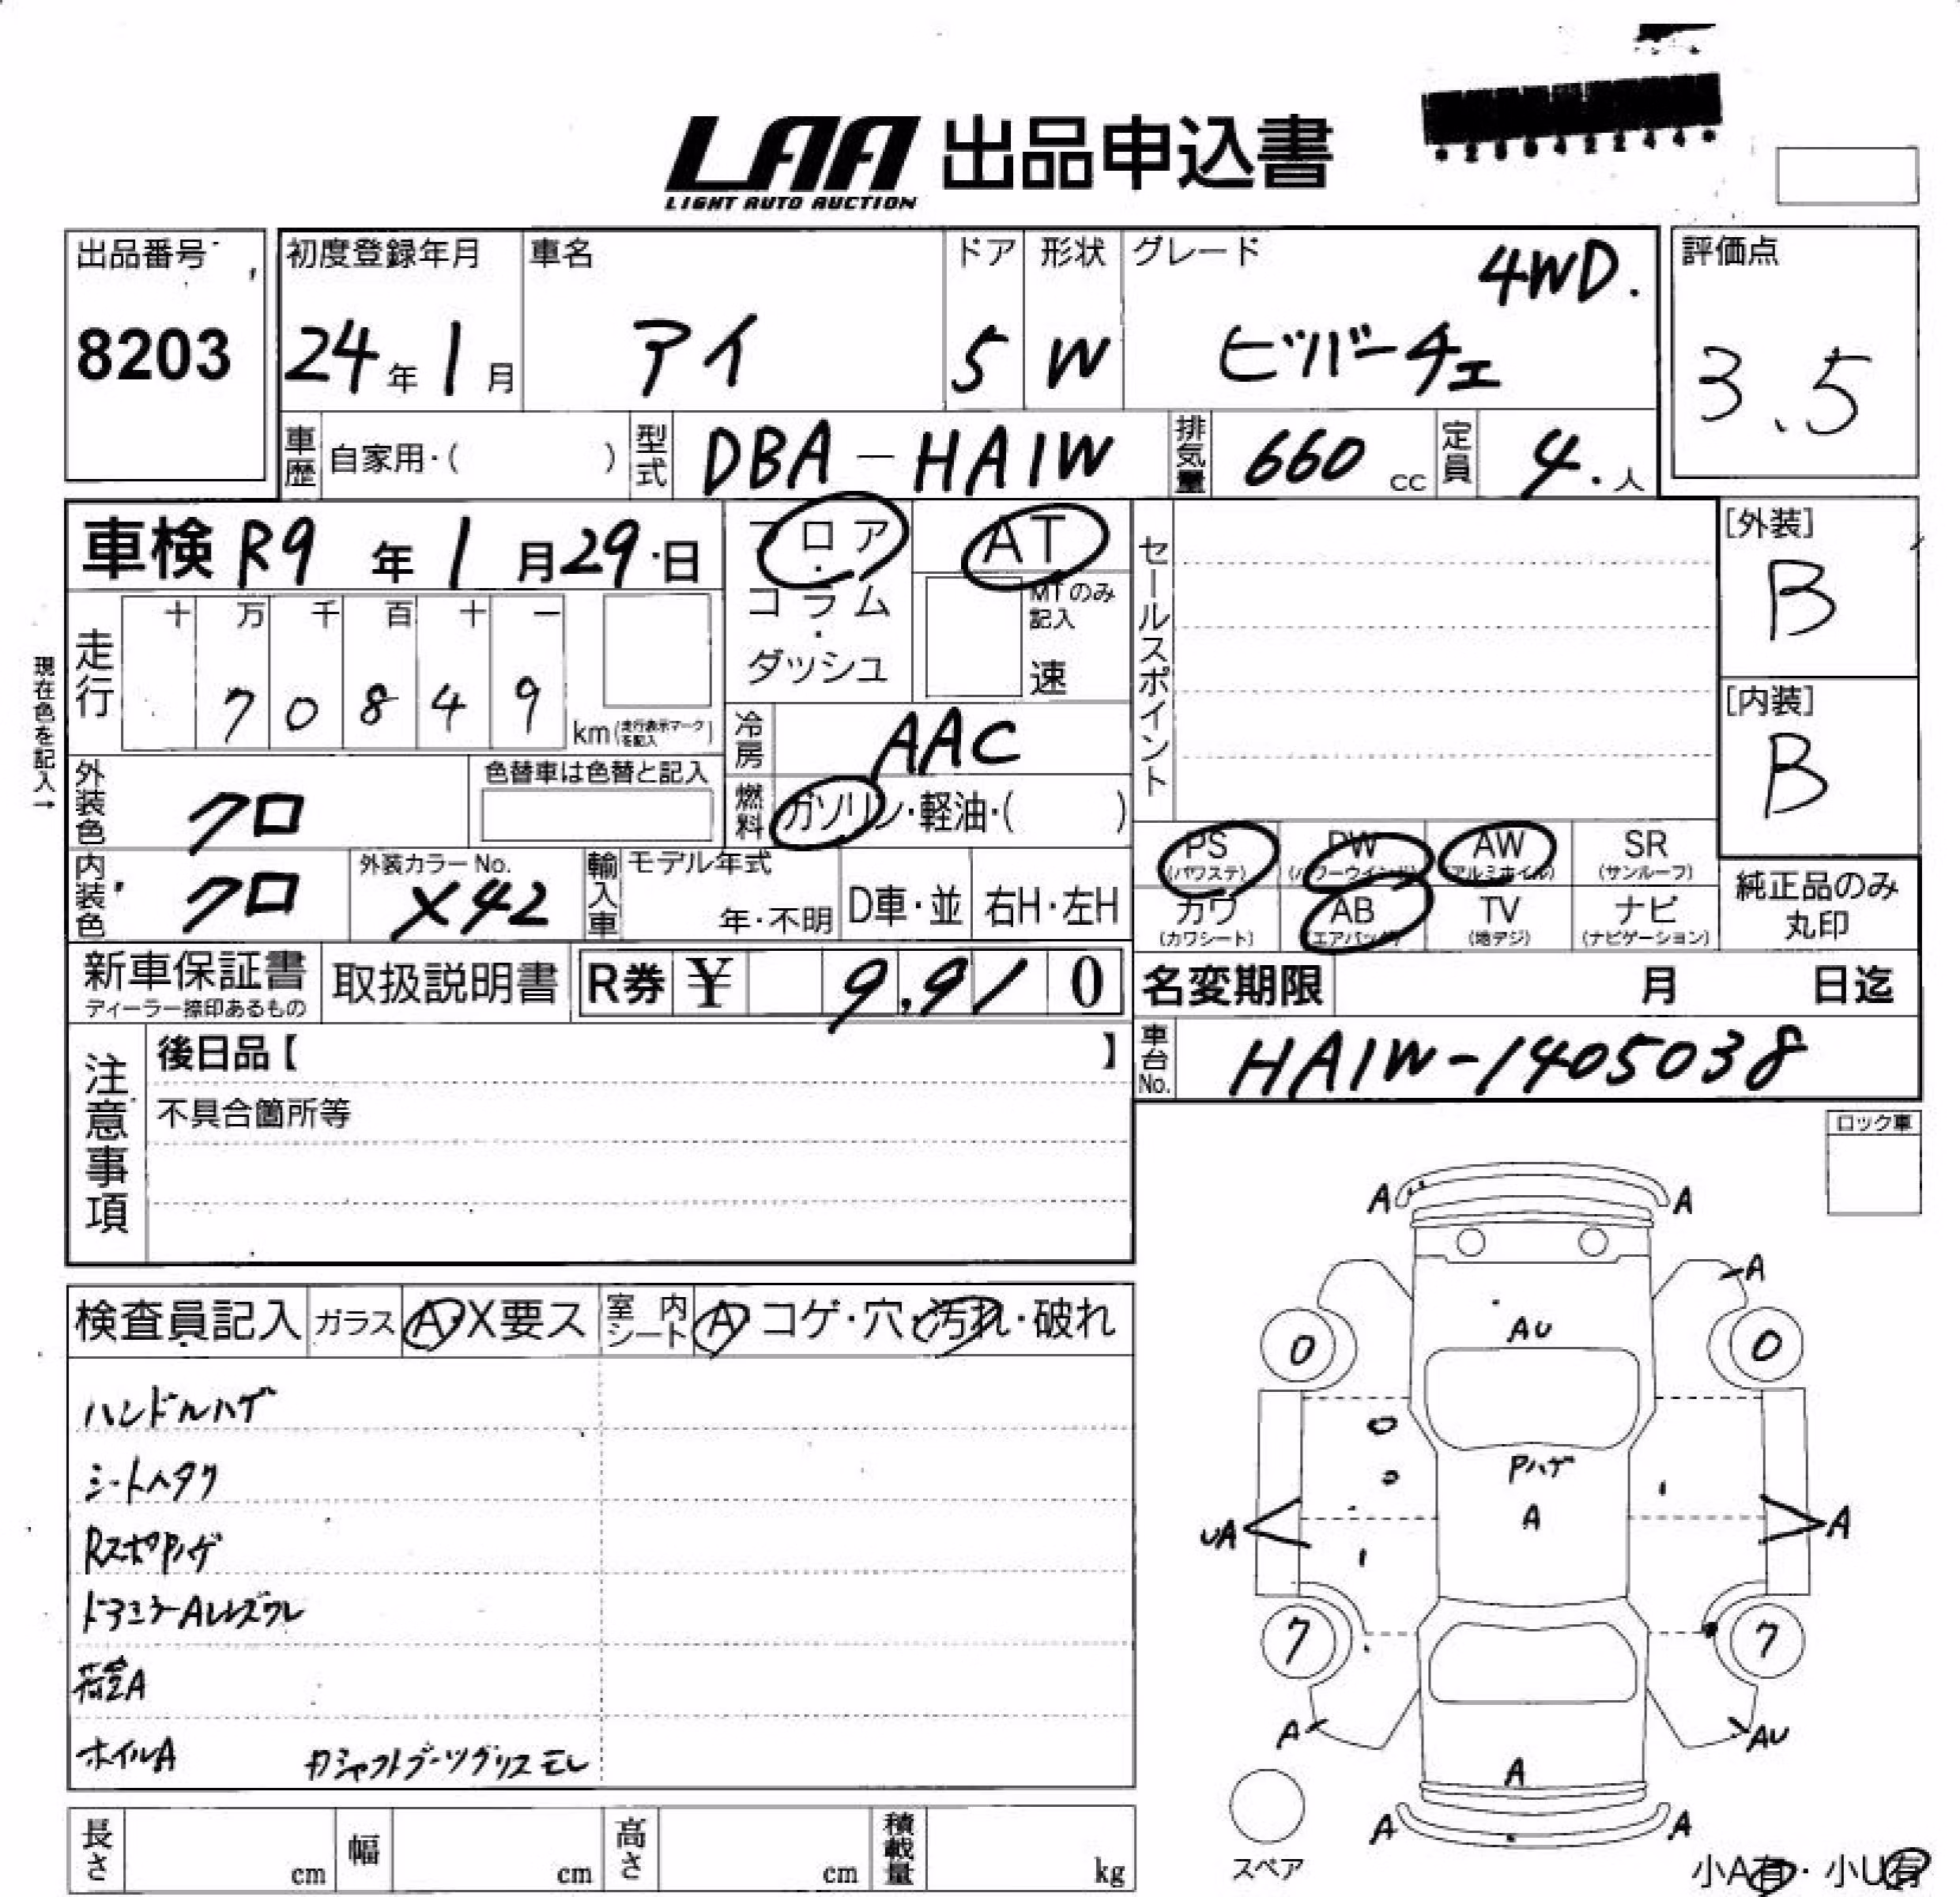 LAA 出品申込書
LIGHT AUTO AUCTION
出品番号
8203
初度登録年月
24年1月
車名
アイ
ドア
5
形状
W
グレード
4WD.
ビバーチェ
評価点
3.5
車歴
自家用・( )
型式
DBA-HA1W
排気量
660 cc
定員
4.人
車検 R9年1月29日
フロア・コラム・ダッシュ
AT
MTのみ記入
速
セールスポイント
[外装]
B
[内装]
B
現在色を記入→
走行
十 万 千 百 十 一
7 0 8 4 9
km(走行表示マークを記入)
冷房
AAC
外装色
クロ
色替車は色替と記入
燃料
ガソリン・軽油・( )
内装色
クロ
外装カラーNo.
X42
輸入車
モデル年式
年・不明
D車・並
右H・左H
PS
(パワステ)
PW
(パワーウインド)
AW
(アルミホイル)
SR
(サンルーフ)
カワ
(カワシート)
AB
(エアバッグ)
TV
(地デジ)
ナビ
(ナビゲーション)
純正品のみ
丸印
新車保証書
ディーラー捺印あるもの
取扱説明書
R券 ¥ 9,910
名変期限 月 日迄
注意事項
後日品【 】
不具合箇所等
車台No.
HA1W-1405038
ロック車
検査員記入
ガラス
A・X要ス
室内シート
A コゲ・穴・汚れ・破れ
ハンドルハゲ
シートヘタリ
RスポPハゲ
ドアミラーAレンズワレ
荷室A
ホイルA
カシャフトブーツグリスモレ
A A
A
AU
0 0
Pハゲ
A
UA A
7 7
A AU
A
A A
スペア
小A有・小U有
長さ cm
幅 cm
高さ cm
積載量 kg